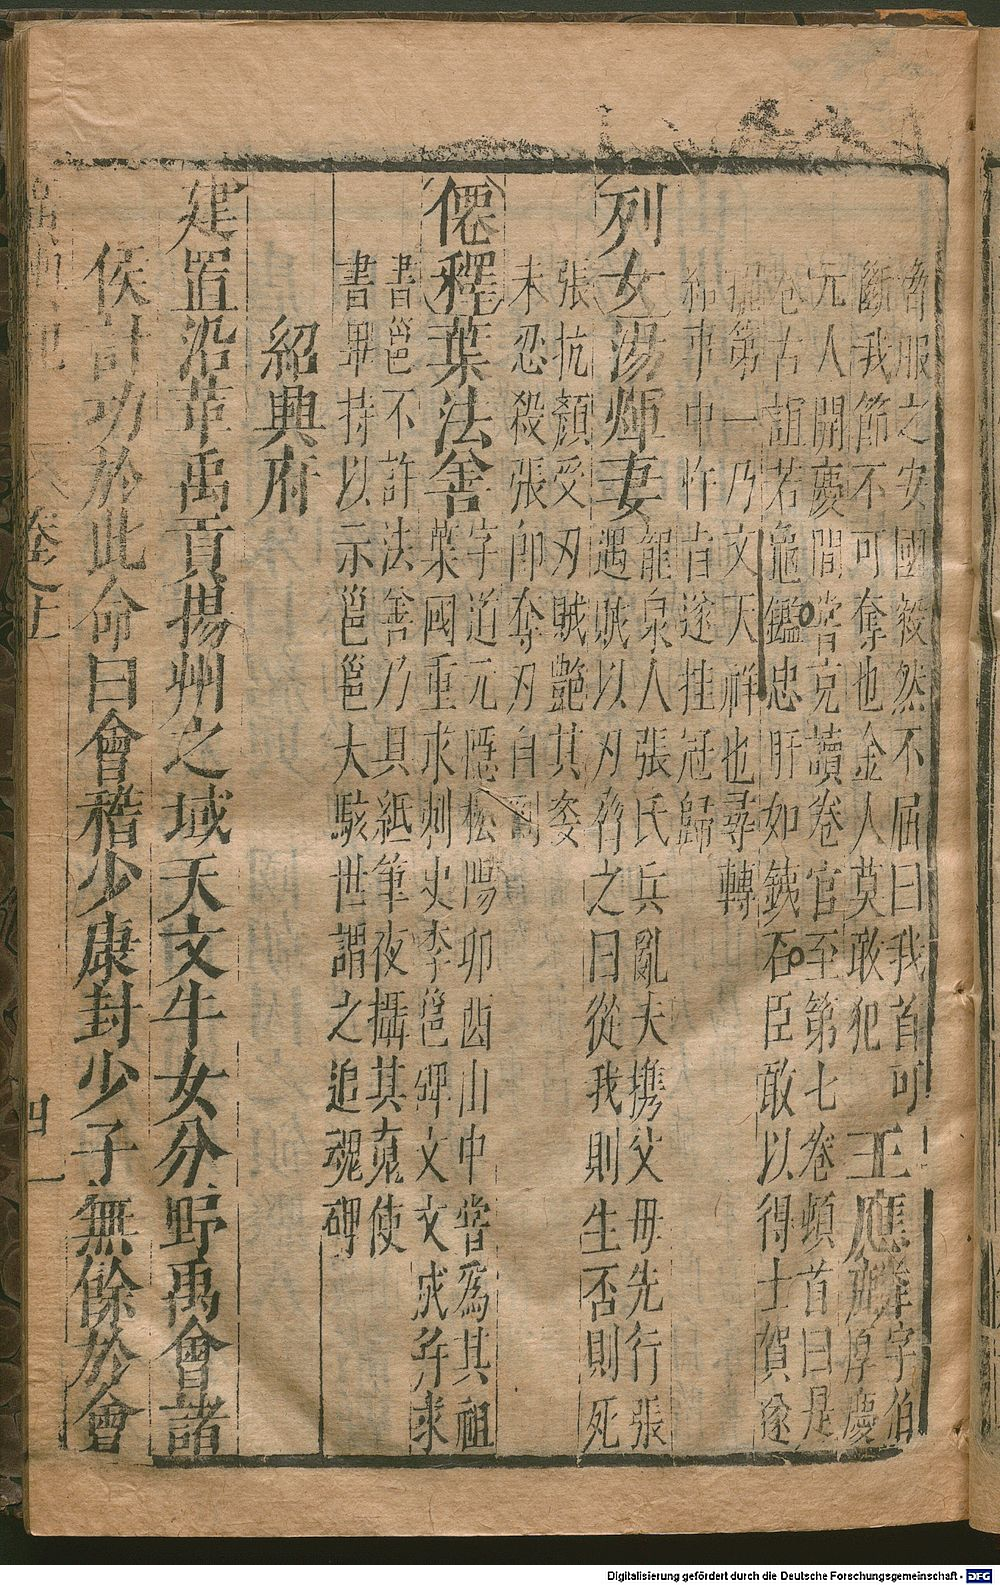 脅服之安國毅然不屈曰我首可
斷我節不可奪也金人莫敢犯
王應麟字伯
厚慶
元人開慶間嘗克讀卷官至第七卷頓首曰是
卷古誼若龜鑑忠肝如鐵石臣敢以得士賀遂
擢第一乃文天祥也尋轉
給事中忤旨遂挂冠歸
列女湯煇妻
龍泉人張氏兵亂夫携父母先行張
遇賊以刃脅之曰從我則生否則死
張抗顏受刃賊艷其姿
未忍殺張卽奪刃自刎
僊釋葉法善
字道元隱松陽卯酉山中嘗爲其祖
葉國重求刺史李邕碑文文成并求
書邕不許法善乃具紙筆夜攝其䰟使
書畢持以示邕邕大駭世謂之追魂碑
紹興府
建置沿革禹貢揚州之域天文牛女分野禹會諸
侯計功於此命曰會稽少康封少子無餘於會
卷之上
四一
Digitalisierung gefördert durch die Deutsche Forschungsgemeinschaft - DFG